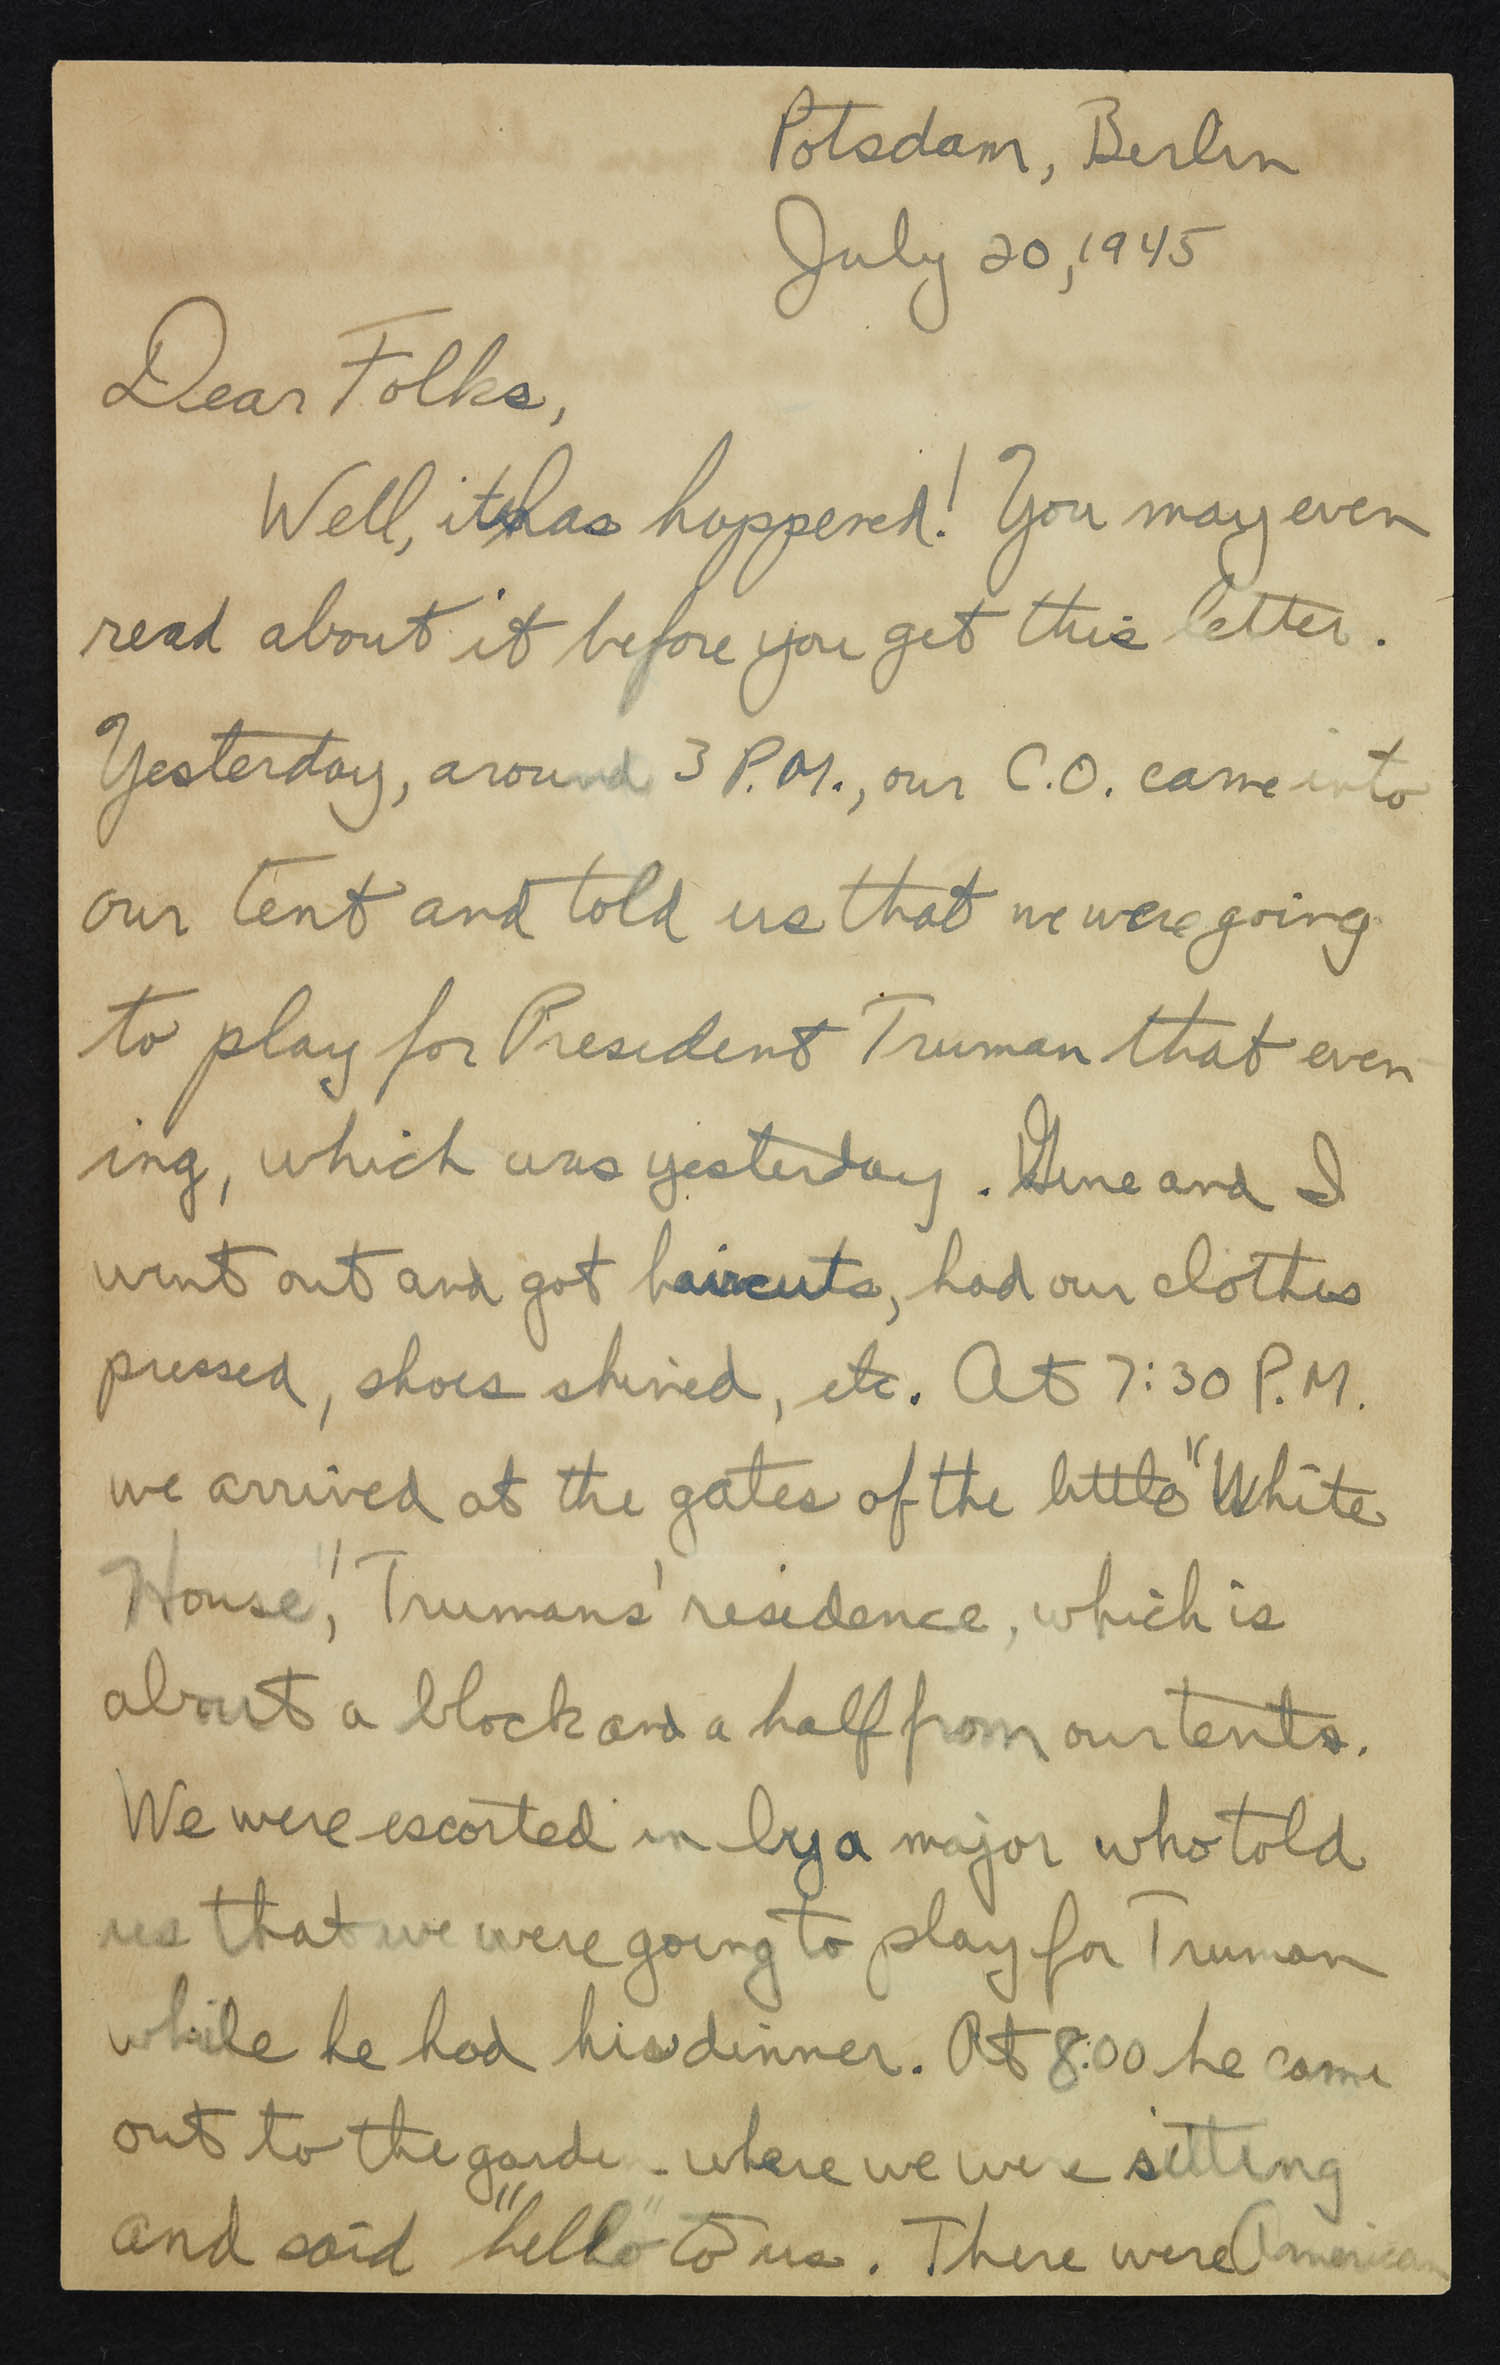 Potsdam, Berlin
July 20, 1945
Dear Folks,
Well, it has happened! You may even
read about it before you get this letter.
Yesterday, around 3 P.M., our C.O. came into
our tent and told us that we were going
to play for President Truman that even
ing, which was yesterday. Gene and I
went out and got haircuts, had our clothes
pressed, shoes shined, etc. At 7:30 P.M.
we arrived at the gates of the little "White
House", Trumans' residence, which is
about a block and a half from our tents.
We were escorted in by a major who told
us that we were going to play for Truman
while he had his dinner. At 8:00 he came
out to the garden where we were sitting
and said "hello" to us. There were American